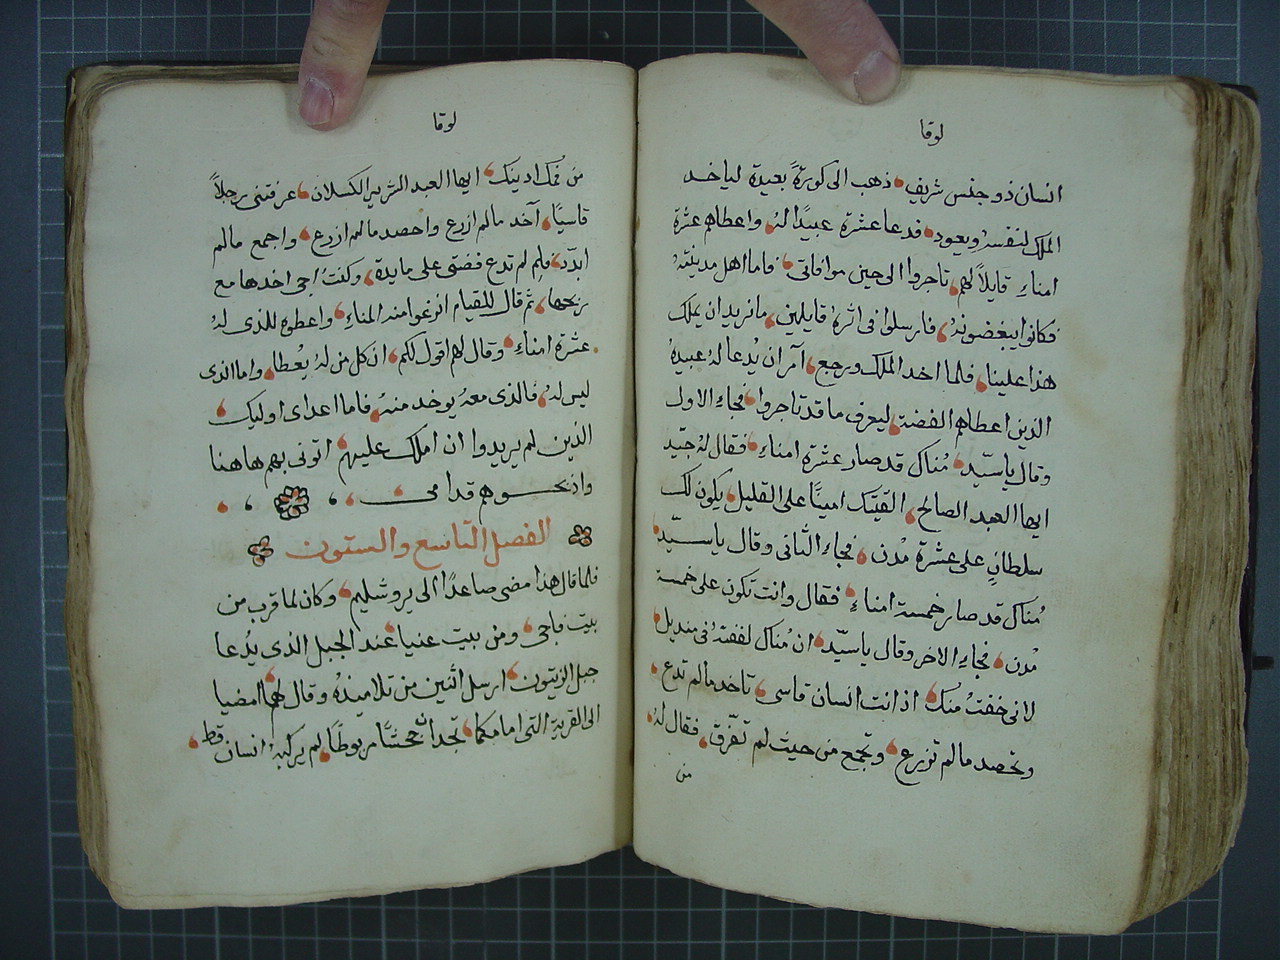 لوقا
انسان ذو جنس شريف ذهب الى كورة بعيدة لياخد
الملك لنفسه ويعود فدعا عشرة عبيدًا له واعطاهم عشرة
امناء قايلاً لهم تاجروا الى حين موافاتى فاما اهل مدينته
فكانوا يبغضونه فارسلوا فى اثره قايلين ما نريد ان يملك
هذا علينا فلما اخد الملك ورجع آمر ان يُدعا له عبيده
الذين اعطاهم الفضة ليعرف ما قد تاجروا فجاء الاول
وقال ياسيّد مُناك قد صار عشرة امناء فقال له جيّد
ايها العبد الصالح القيتك امينًا على القليل يكون لك
سلطان على عشرة مُدن فجاء الثانى وقال ياسيّد
مُناك قد صار خمسة امناء فقال وانت تكون على خمسة
مُدن فجاء الاخر وقال ياسيّد ان مُناك لففته فى منديل
لانى خفت مُنك اذ انت انسان قاسى تاخد مالم تدع
وتحصد مالم تزرع وتجمع من حيث لم تفرّق فقال له
من
لوقا
من فمك ادينك ايها العبد الشرير الكسلان عرفتنى رجلاً
قاسيًا آخد مالم ازرع واحصد مالم ازرع واجمع مالم
ابدّد فلم لم تدع فضتى على مايدة وكنت اجى اخدها مع
ربحها ثم قال للقيام انزعوا منه المناء واعطوه للذى له
عشرة امناء وقال لهم اقول لكم ان كل من له يُعطا واما الذى
ليس له فالذى معه يوخد منه فاما اعداى اوليك
الذين لم يريدوا ان املك عليهم اتونى بهم هاهنا
واذبحوهم قدامى
الفصل التاسع والستون
فلما قال هذا مضى صاعدًا الى يروشليم وكان لما قرب من
بيت فاجى ومن بيت عنيا عند الجبل الذى يُدعا
جبل الزيتون ارسل اثنين من تلاميذه وقال لهم امضيا
الى القرية التى امامكما تجدان جحشًا مربوطًا لم يركبه انسان قط